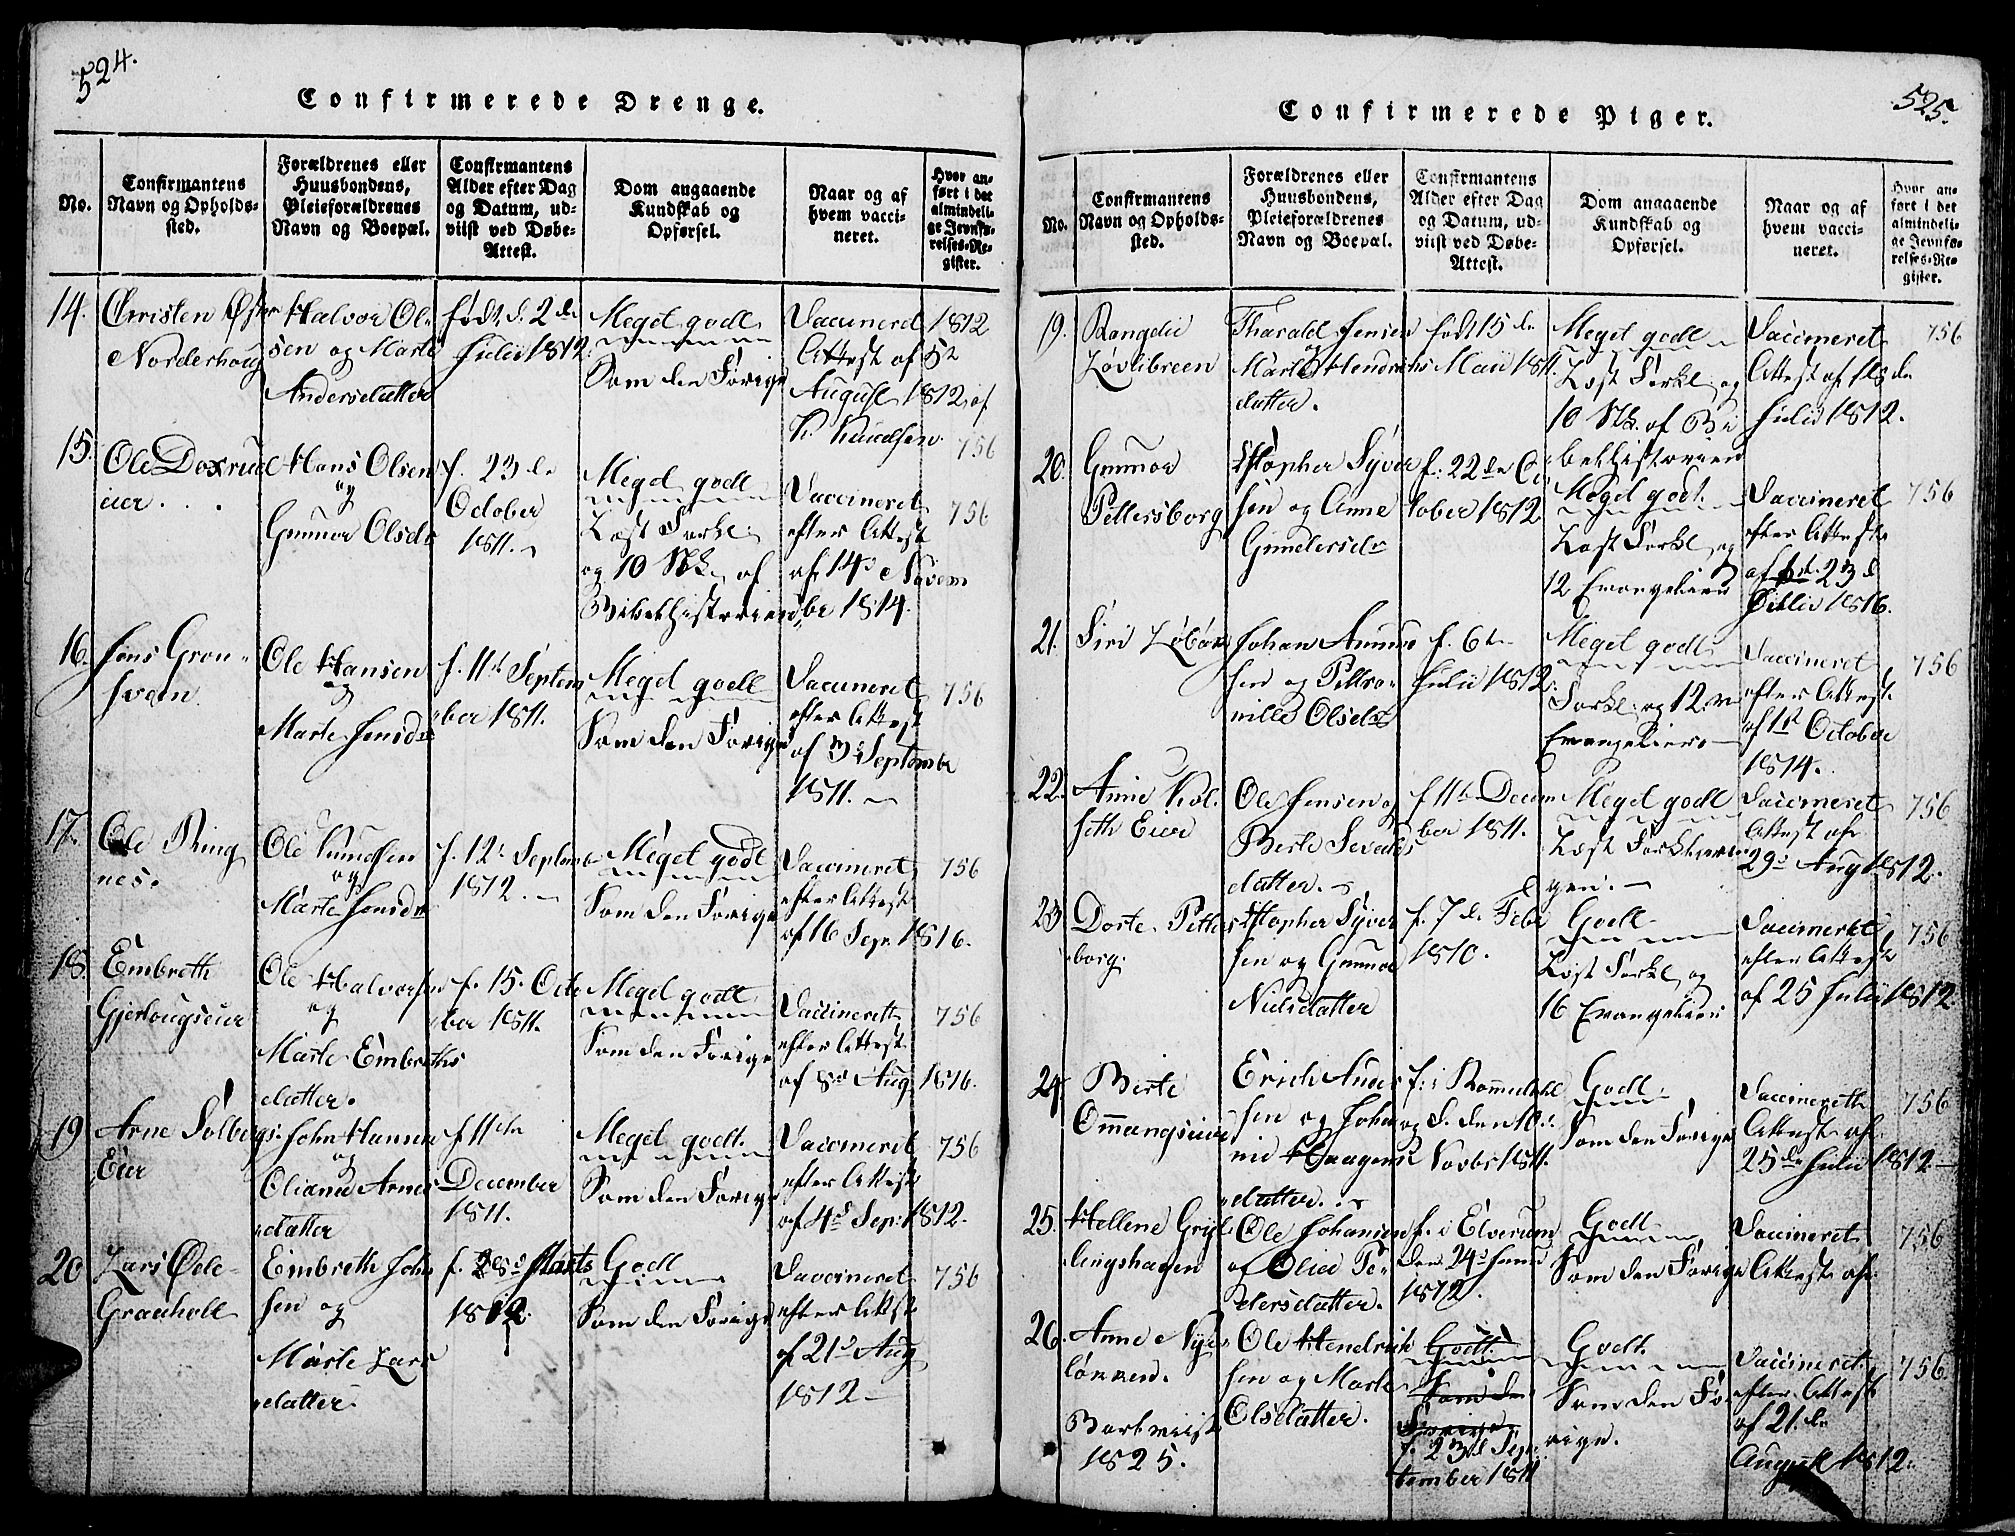 524.
Confirmerede Drenge.
No.
Confirmantens
Navn og Opholds-
sted.
Forældrenes eller
Huusbondens,
Pleieforældrenes
Navn og Boepæl.
Confirmantens
Alder efter Dag
og Datum, ud-
viist ved Døbe-
Attest.
Dom angaaende
Kundskab og
Opførsel.
Naar og af
hvem vacci-
neret.
Hvor an-
ført i det
almindeli-
ge Jevnfø-
relses-Re-
gister.
14.
Christen
Norderhoug
Halvor Ol-
sen og Marte
Andersdatter
født d. 2de
Julii 1812
Meget godt
Som den Forige
Vaccineret 1812
Attest af 5t
August 1812 af
K. Knudsen
756
15.
Ole Doxrud
eier
Hans Olsen
og
Gunnor Olsdr
f. 23de
October
1811.
Meget godt
Læst Forkl.
og 10 Stk. af
Bibelhistorien
Vaccineret
efter Attest
af 14 Novem
ber 1814.
756
16.
Jens Gron-
sveen
Ole Hansen
og
Marte Jensdr
f. 11te Septem
ber 1811.
Meget godt
Som den Forige
Vaccineret
efter Attest
af 3d Septembr
1811.
756
17.
Ole Ring
nes.
Ole Knudsen
og
Marte Jensdr
f. 12te Septembr
1812.
Meget godt
Som den Forige
Vaccineret
efter Attest
af 16 Sepr 1816.
756
18.
Embreth
Gjerlougseier
Ole Halvorsen
og
Marte Embreths
datter.
f. 15. Octo
ber 1811.
Meget godt
Som den Forige
Vaccineret
efter Attest
af 8d Aug 1816.
756
19
Arne Solbergs
Eier
John Hansen
og
Oliana Arnes
datter
f 11te
December
1811.
Meget godt.
Som den Forige
Vaccineret
efter Attest
af 4d Sepr 1812.
756
20
Lars Øde-
Graaholt
Embreth John
sen og
Marte Lars
datter
f. 28d Marts
1812
Godt
Som den Forige
Vaccineret
efter Attest
af 21d Aug
1812
756
525.
Confirmerede Piger.
No.
Confirmantens
Navn og Opholds-
sted.
Forældrenes eller
Huusbondens,
Pleieforældrenes
Navn og Boepæl.
Confirmantens
Alder efter Dag
og Datum, ud-
viist ved Døbe-
Attest.
Dom angaaende
Kundskab og
Opførsel.
Naar og af
hvem vacci-
neret.
Hvor an-
ført i det
almindeli-
ge Jevnfø-
relses-Re-
gister.
19.
Rangdie
Løvlibreen
Tharald Jensen
Marte Hendrichs
datter.
født 15de
Maii 1811.
Meget godt
Læst Forkl. og
10 Stk. af Bi
belhistorien
Vaccineret
Attest af 18de
Julii 1812.
756
20.
Gunnor
Pettersborg
Christopher Syver
sen og Anne
Gundersdr
f. 22de Oc
tober 1812
Meget godt.
Læst Forkl. og
12 Evangelier
Vaccineret
efter Attest
af 23d
Julii 1816.
756
21.
Siri
Johan Amund
sen og Petro-
nille Olsdr
f. 6te
Julii 1812.
Meget godt
Forkl. og 12
Evangelier
Vaccineret
efter Attest
af 1st October
1814.
756
22.
Anne Kol-
seth Eier
Ole Jensen og
Berte Sevalds
datter.
f 11te Decem
ber 1811.
Meget godt
Læst Forklarin
gen.
Vaccineret
Attest af
29d Aug 1812.
756
23
Dorte Petters
borg.
Christopher Syver
sen og Gunnor
Nielsdatter
f. 7de Febr
1810.
Godt
Læst Forkl. og
16 Evangelier
Vaccineret
efter Attest
af 25 Julii 1812
756
24.
Berte
Ommangseier
Erich Anders
sen og Johan
ne Haagens
datter.
f. i Rommedahl
og d. den 10de
Novbr 1811.
Godt
Som den Forige
Vaccineret
Attest af
25de Julii 1812
756
25.
Hellene Gryt-
lingshagen
Ole Johansen
og Olia Pe-
dersdatter.
f. i Elverum
den 24d Junii
1812.
Godt
Som den Forige
Vaccineret
Attest af
756
26.
Anne Nye-
løkken.
Bortreist
1825.
Ole Hendrik
sen og Marte
Olsdatter.
Godt.
Som den
Forige
f. 23d Sep-
tember 1811
Godt.
Som den Fo-
rige.
Vaccineret
efter Attest
af 21de
August 1812.
756